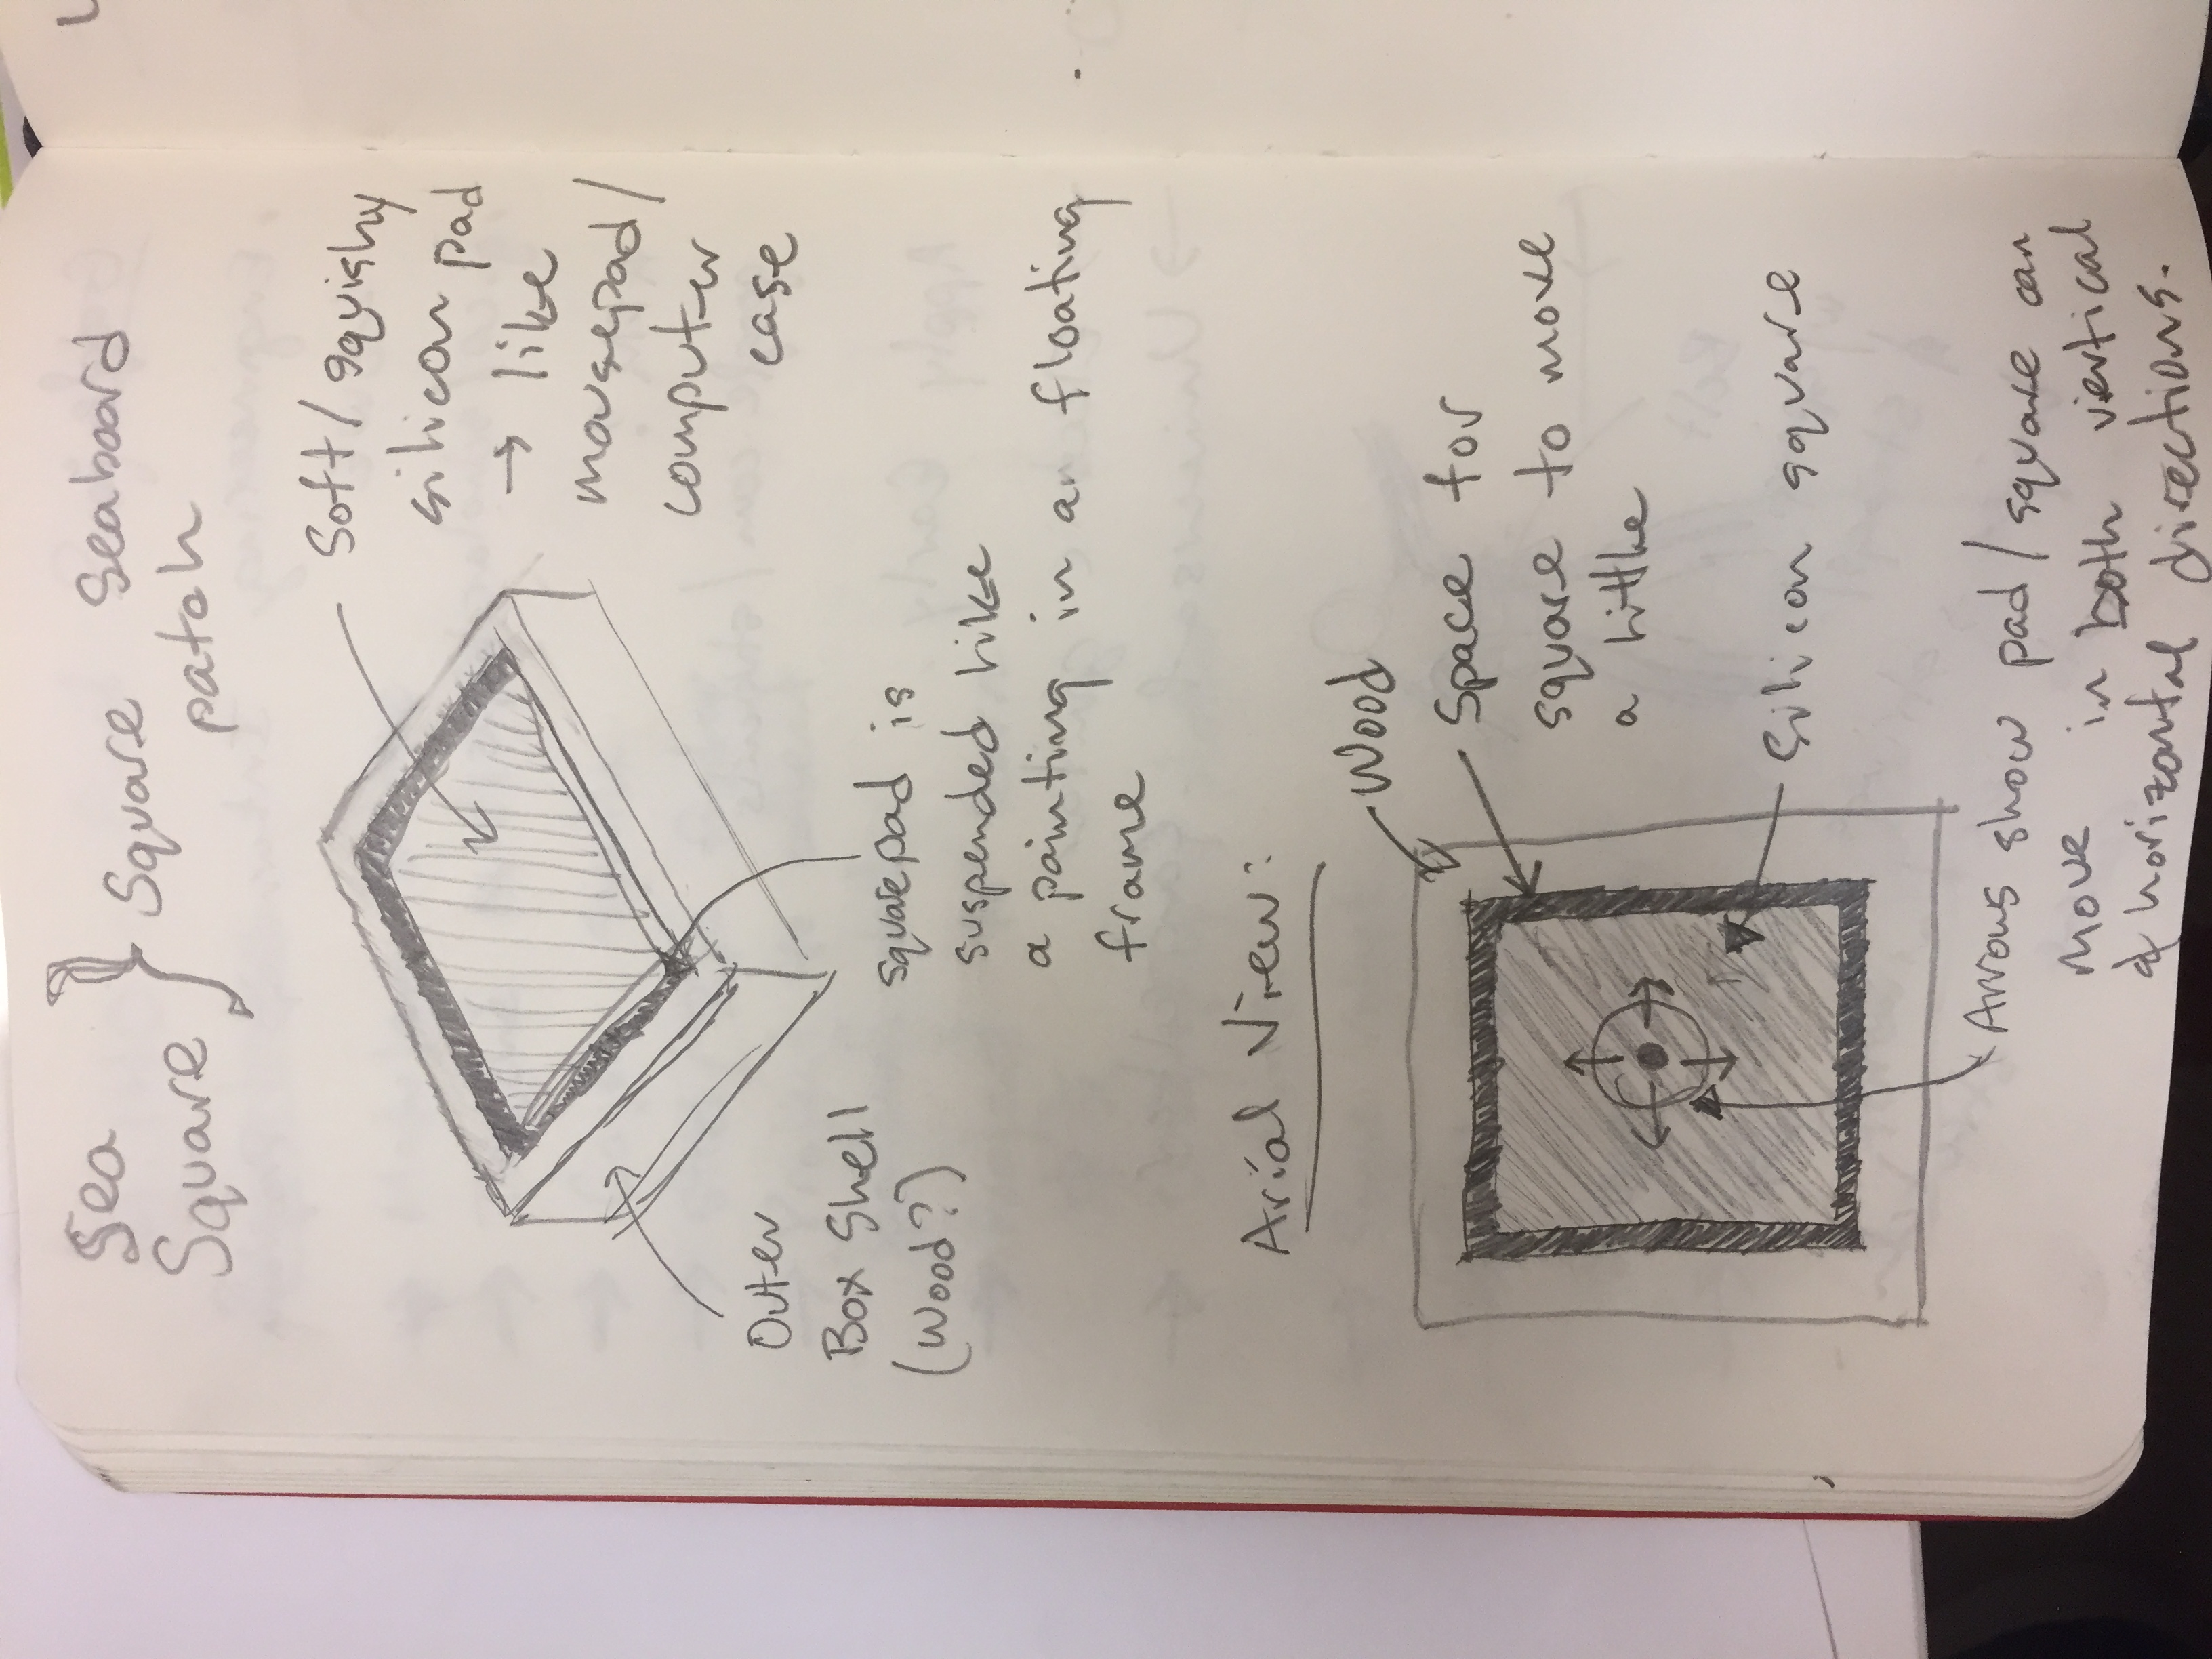 Sea
Square
Square Seaboard
patch
Soft/squishy
silicon pad
→ like
mousepad/
computer
case
Outer
Box Shell
(wood?)
squarepad is
suspended like
a painting in an floating
frame
Arial View:
Wood
Space for
square to move
a little
Silicon square
Arrows show pad/square can
move in both vertical
& horizontal directions.